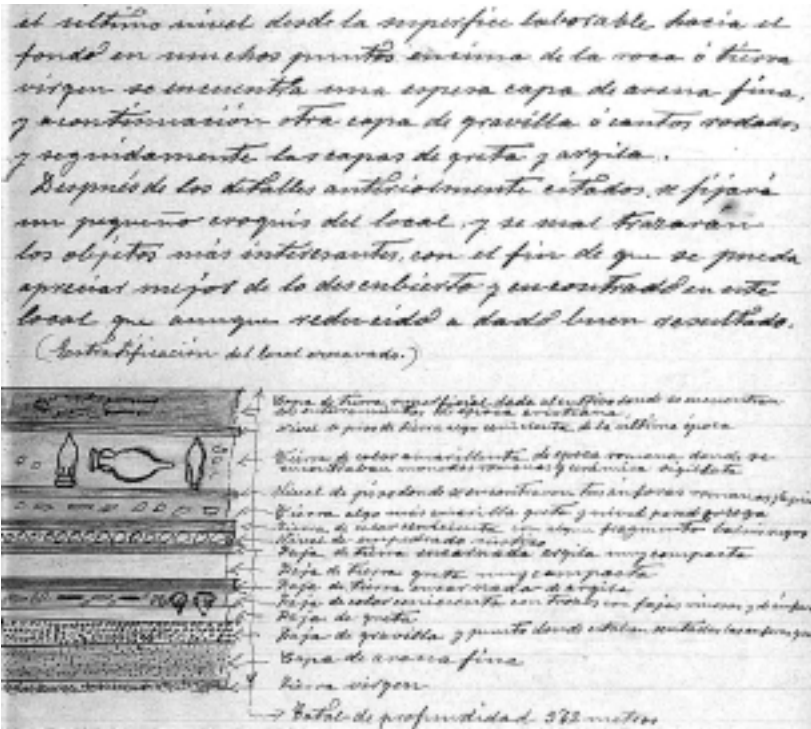 el ultimo nivel desde la superfice laborable hacia el
fondo en munchos puntos encima de la roca ó tierra
virgen se encuentra una espesa capa de arena fina,
y acontinuación otra capa de gravilla ó cantos rodados
y seguidamente las capas de greta y argila.
Después de los detalles anteriormente citados, se fijará
un pequeño croquis del local, y se mal trazaran
los objetos más interesantes, con el fin de que se pueda
apreciar mejor de lo descubierto y encontrado en este
local que aunque reducido a dado buen resultado.
(Estratificación del local escavado.)
Capa de tierra superficial dada al cultivo donde se encuentran
época cristiana.
nivel ó piso de tierra algo cenicienta de la ultima época
Tierra de color amarillenta de época romana, donde se
encontraban monedas romanas y cerámica sigillata
Nivel de piso donde se encontraron las ánforas romanas
Tierra algo más amarilla greta y nivel
Tierra de color cenicienta con algun fragmento
Nivel de empedrado rústico
Faja de tierra encarnada argila muy compacta
Faja de tierra greta muy compacta
Faja de tierra encarnada de argila
Faja de color cenicienta con trozos
Faja de greta
Faja de gravilla y punto donde estaban
Capa de arena fina
Tierra virgen
Total de profundidad metros